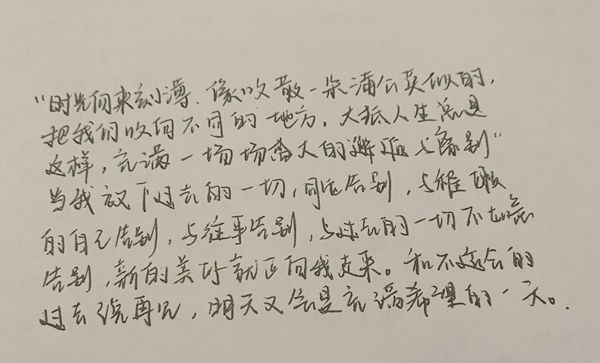 "时光向来刻薄、像吹散一朵蒲公英似的,
把我们吹向不同的地方,大抵人生总是
这样,充满一场场盛大的邂逅与离别"
当我放下过去的一切,同过告别,与稚嫩
的自己告别,与往事告别,与过去的一切不如意
告别,新的美好就正向我走来。和不适合的
过去说再见,明天又会是充满希望的一天。